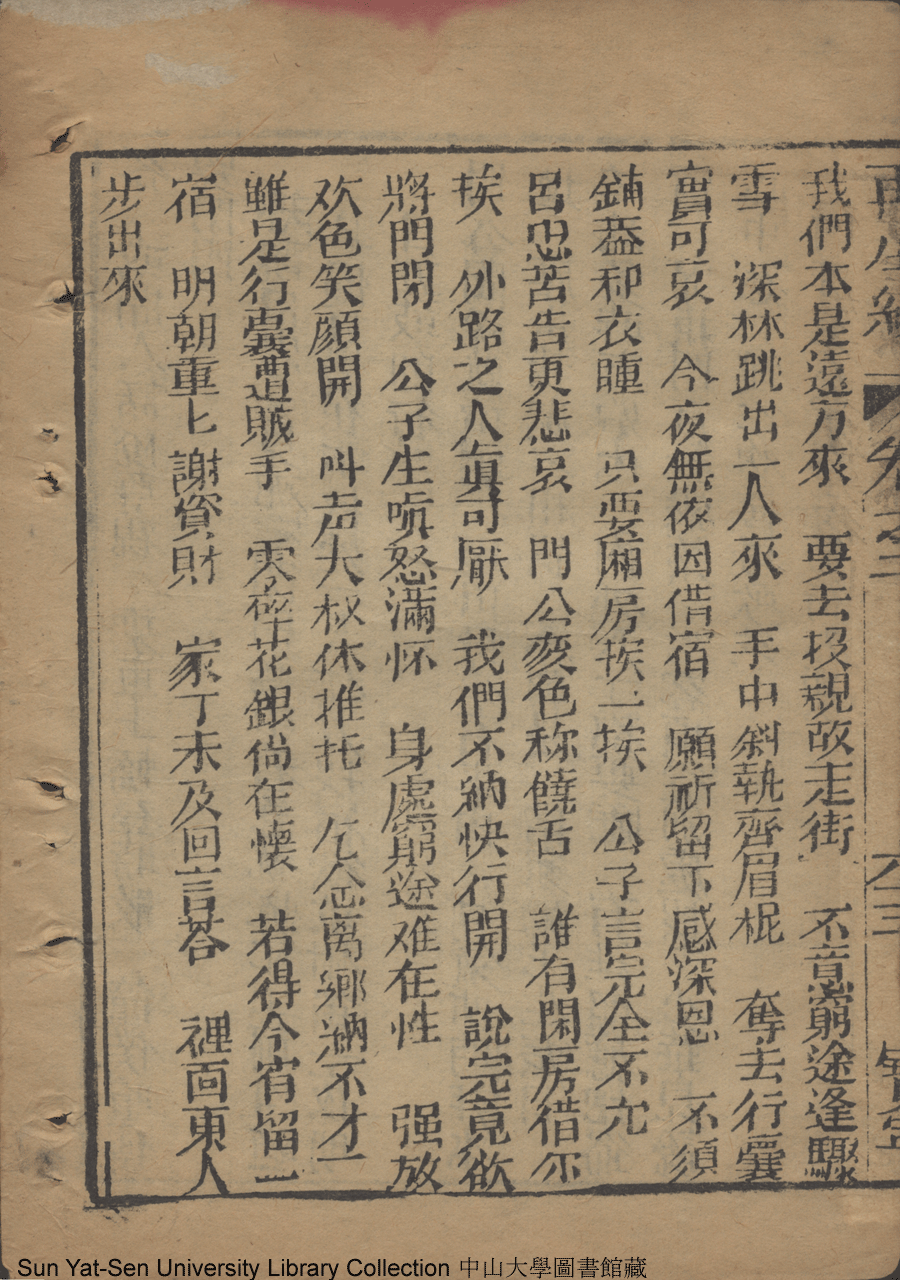 再生緣 卷之三 全三 貿全
我們本是遠方來 要去投親故走街 不意窮途逢驟
雪 深林跳出一人來 手中斜執齊眉棍 奪去行囊
實可哀 今夜無依因借宿 願祈留下感深恩 不須
鋪蓋和衣睡 只要廂房挨一挨 公子言完全不允
呂忠苦告更悲哀 門公变色称饒舌 誰有閑房借尔
挨 外路之人真可厭 我們不納快行開 說完竟欲
將門閉 公子生嗔怒滿怀 身處窮途难在性 强放
欢色笑顔開 叫声大叔休推托 乞念离鄉納不才
雖是行囊遭賊手 零碎花銀尙在懷 若得今宵留一
宿 明朝重匕謝資財 家丁未及回言荅 裡面東人
步出來
Sun Yat-Sen University Library Collection 中山大學圖書館藏